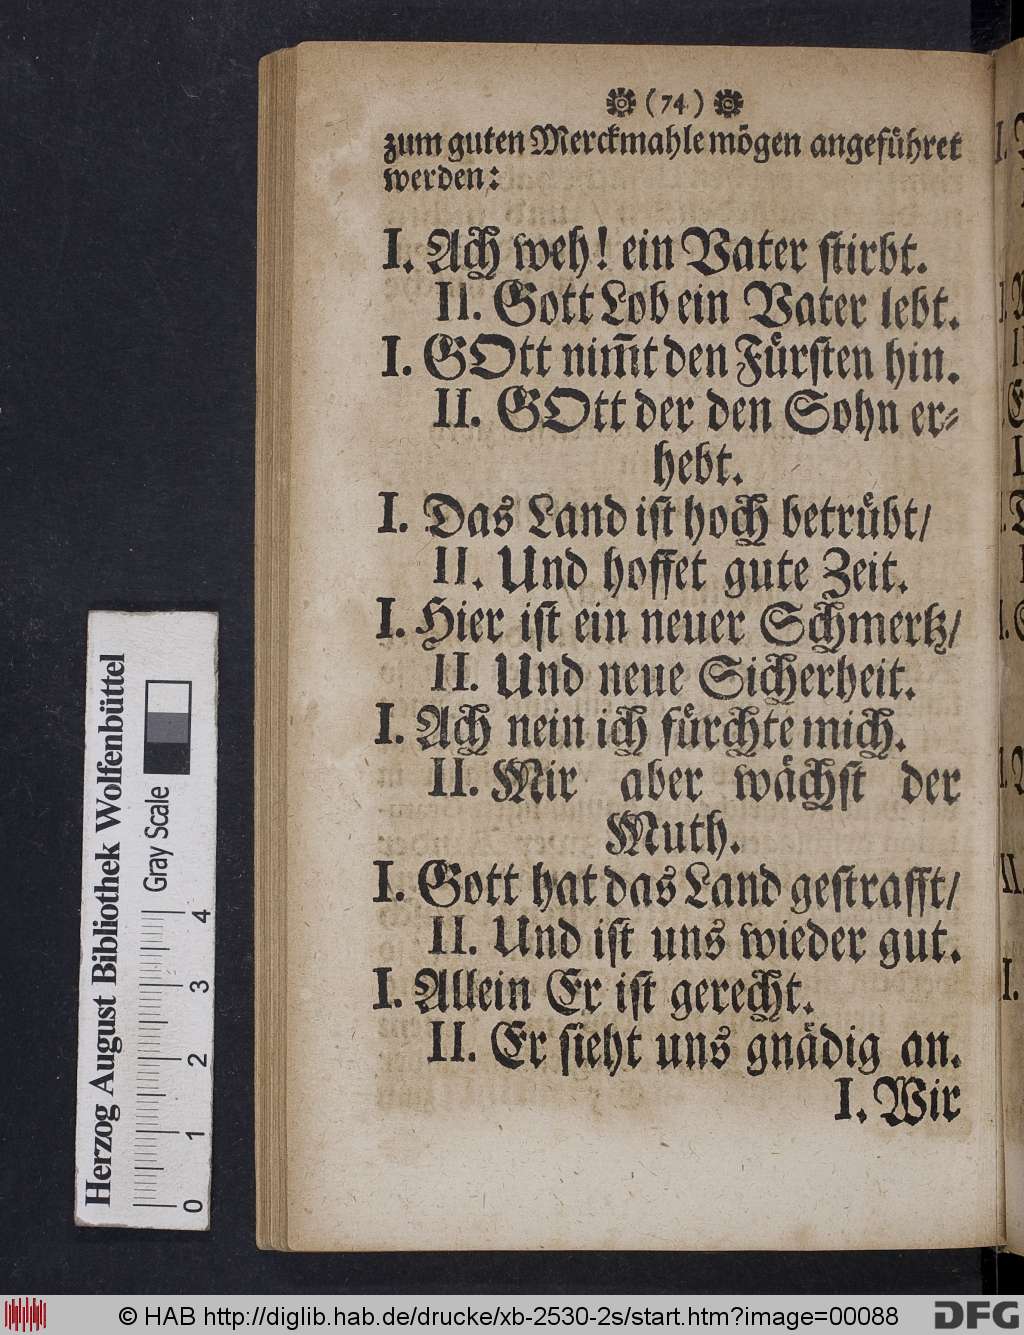 (74)
zum guten Merckmahle mögen angeführet
werden:
I. Ach weh! ein Vater stirbt.
II. Gott Lob ein Vater lebt.
I. GOtt nim̃t den Fürsten hin.
II. GOtt der den Sohn er-
hebt.
I. Das Land ist hoch betrübt/
II. Und hoffet gute Zeit.
I. Hier ist ein neuer Schmertz/
II. Und neue Sicherheit.
I. Ach nein ich fürchte mich.
II. Mir aber wächst der
Muth.
I. Gott hat das Land gestrafft/
II. Und ist uns wieder gut.
I. Allein Er ist gerecht.
II. Er sieht uns gnädig an.
I. Wir
Herzog August Bibliothek Wolfenbüttel
Gray Scale
0 1 2 3 4
© HAB http://diglib.hab.de/drucke/xb-2530-2s/start.htm?image=00088
DFG